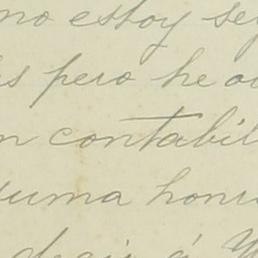 no estoy se
s pero he o
n contabil
uma honr
decir á